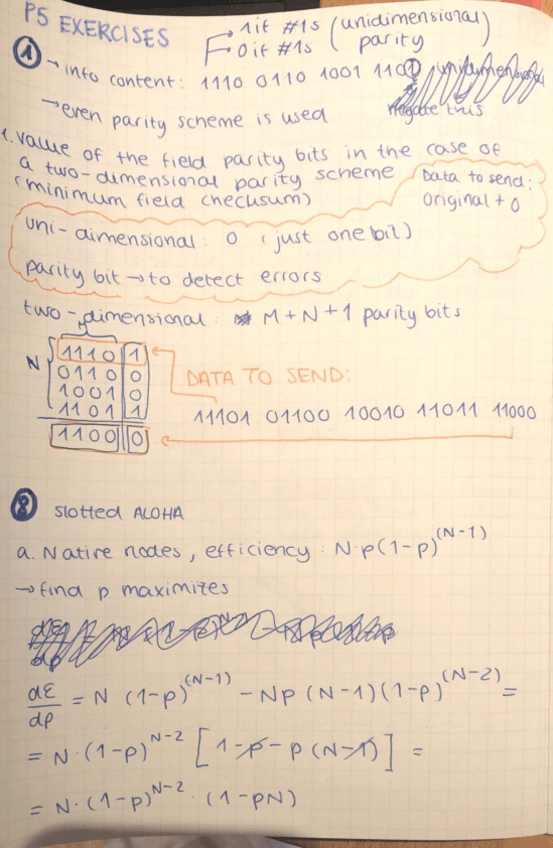 P5 EXERCISES
→ 1 if #1s (unidimensional)
→ 0 if #1s parity
① → info content: 1110 0110 1001 110①
negate this
→ even parity scheme is used
1. value of the field parity bits in the case of
a two-dimensional parity scheme
(minimum field checksum)
Data to send:
original + 0
uni-dimensional: 0 (just one bit)
parity bit → to detect errors
two-dimensional: M+N+1 parity bits
N
1110 1
0110 0
1001 0
1101 1
1100 0
DATA TO SEND:
11101 01100 10010 11011 11000
⑧ slotted ALOHA
a. Native nodes, efficiency: N·p(1-p)^(N-1)
→ find p maximizes
dE/dp = N (1-p)^(N-1) - Np (N-1)(1-p)^(N-2) =
= N·(1-p)^N-2 [1-p-p(N-1)] =
= N·(1-p)^N-2 · (1-pN)